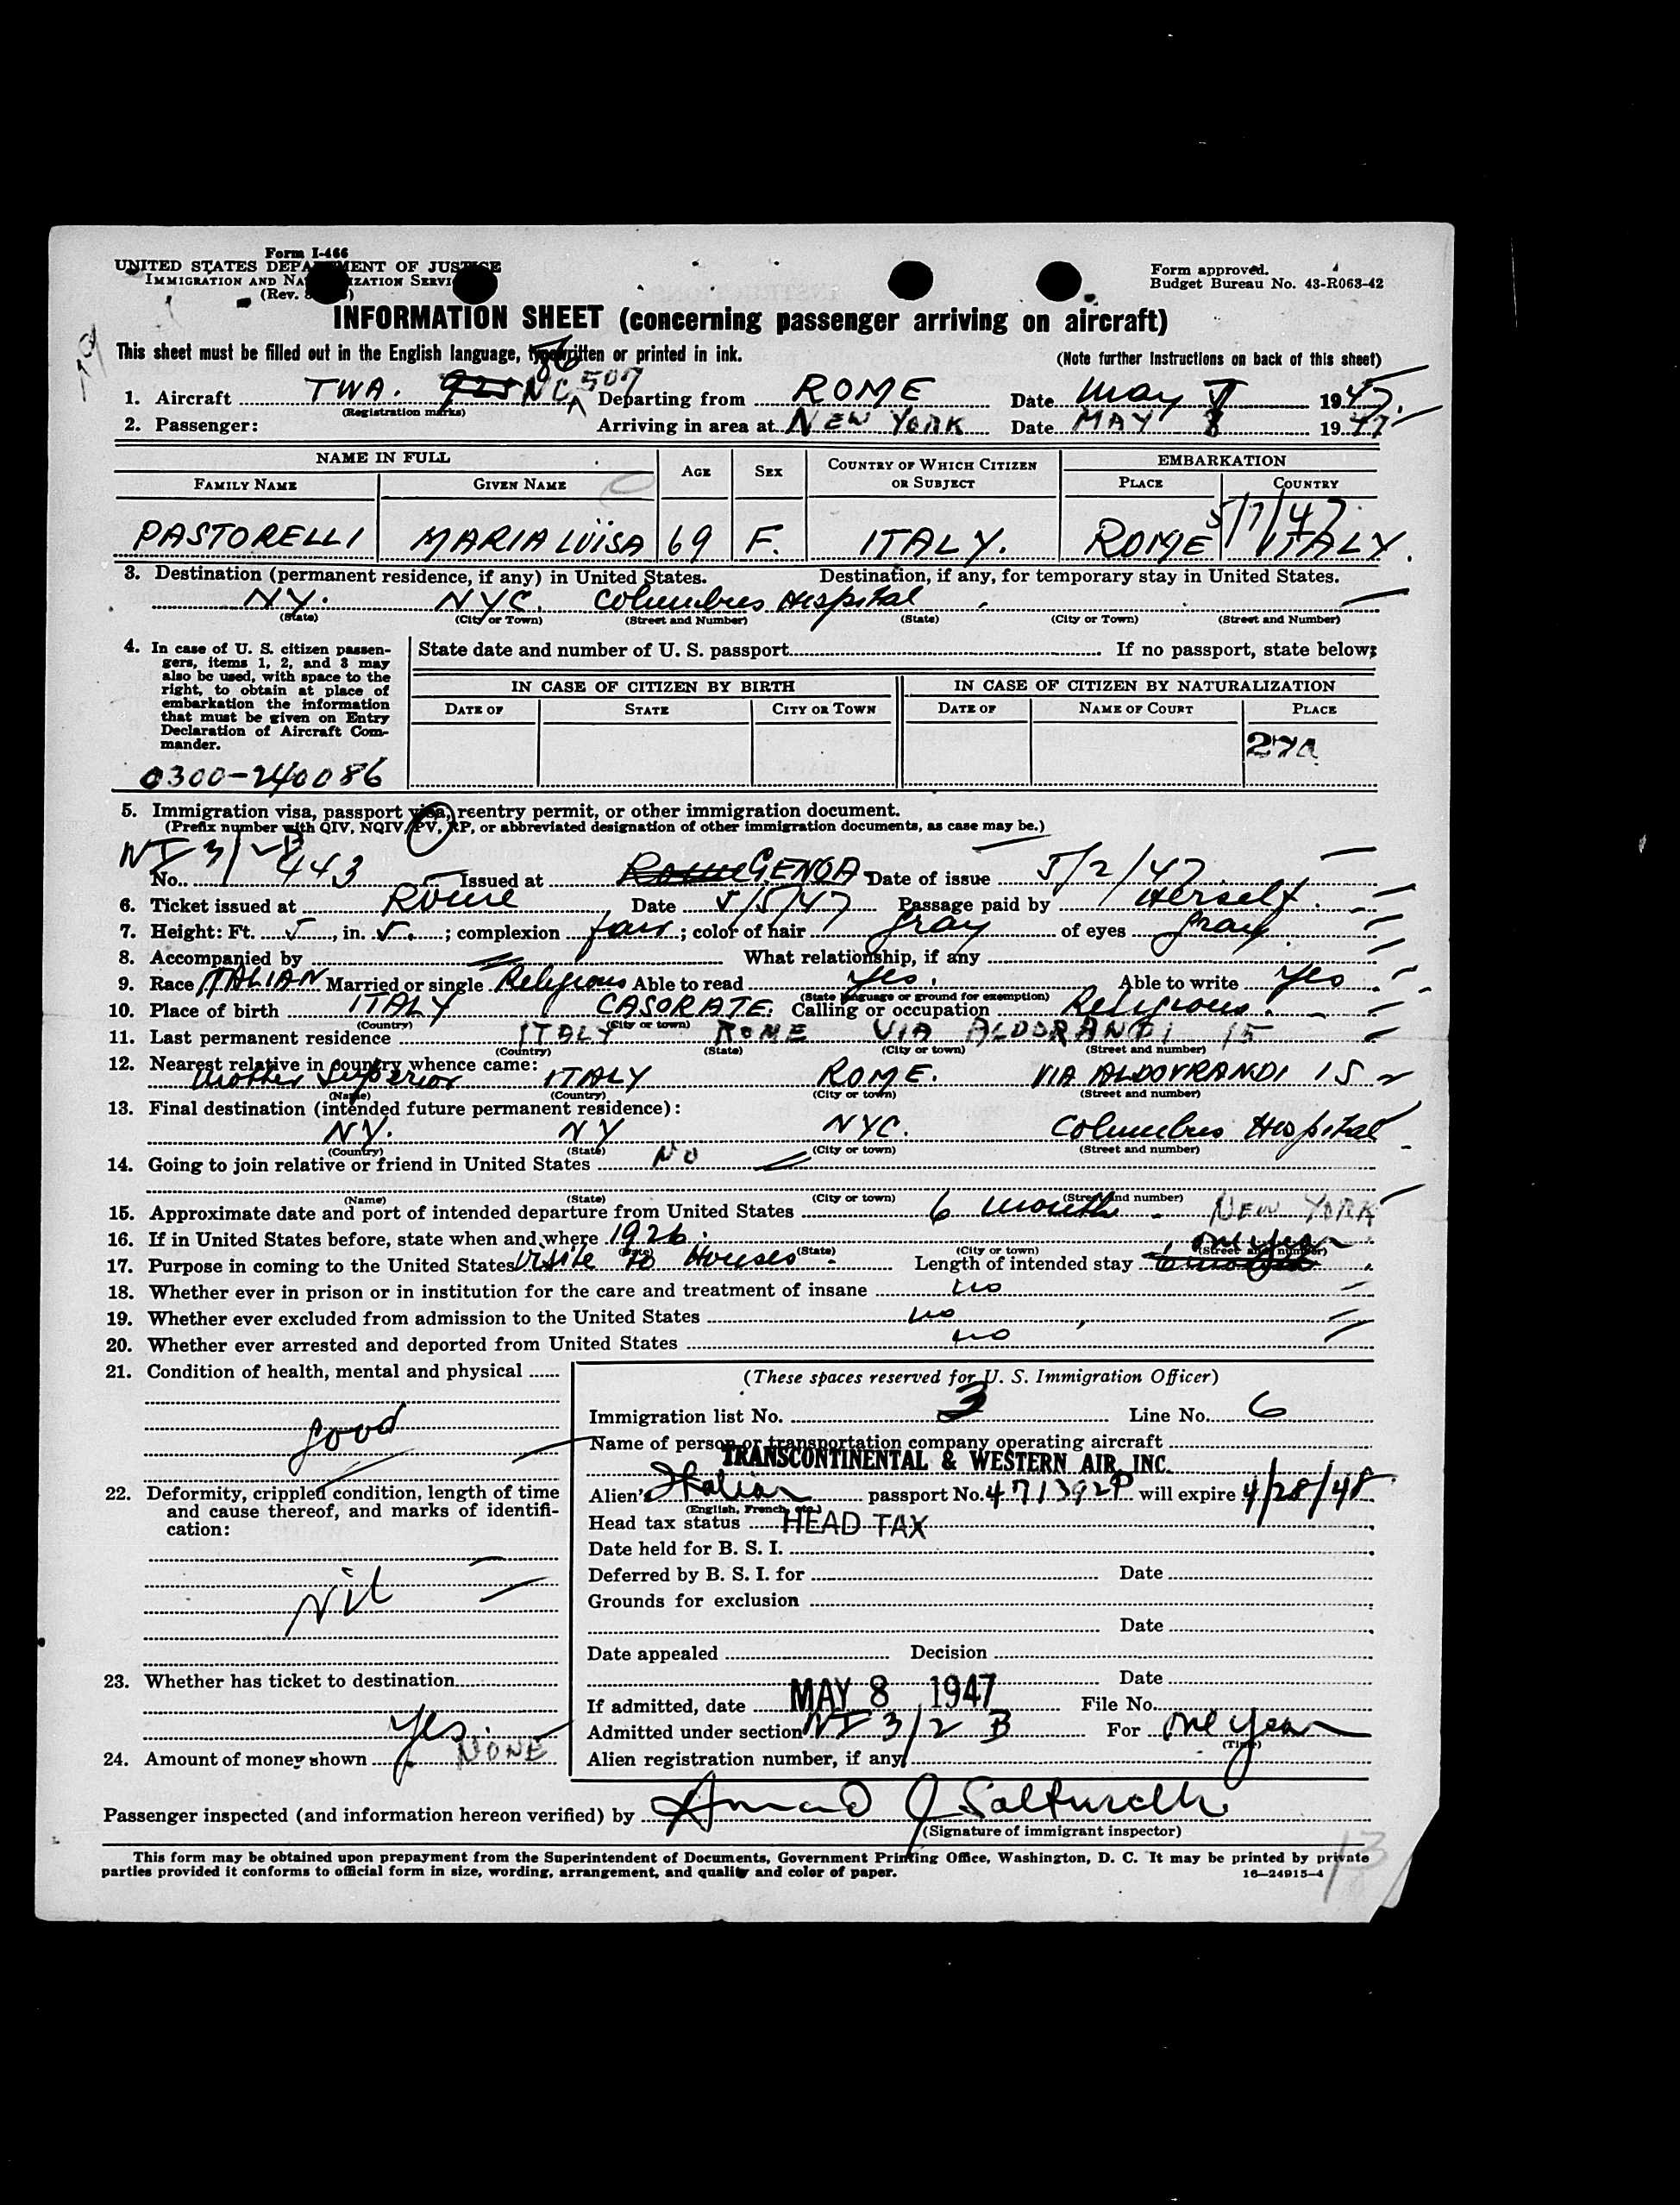 Form I-466
UNITED STATES DEPARTMENT OF JUSTICE
IMMIGRATION AND NATURALIZATION SERVICE
(Rev.
Form approved.
Budget Bureau No. 43-R063-42
INFORMATION SHEET (concerning passenger arriving on aircraft)
This sheet must be filled out in the English language, typewritten or printed in ink.
(Note further instructions on back of this sheet)
1. Aircraft TWA. NC 86507 Departing from ROME Date May 1947.
(Registration marks)
2. Passenger: Arriving in area at NEW YORK Date MAY 8 1947
NAME IN FULL AGE SEX COUNTRY OF WHICH CITIZEN OR SUBJECT EMBARKATION
FAMILY NAME GIVEN NAME PLACE COUNTRY
5/7/47.
PASTORELLI MARIA LUISA 69 F. ITALY. ROME ITALY.
3. Destination (permanent residence, if any) in United States. Destination, if any, for temporary stay in United States.
N.Y. NYC. Columbus Hospital
(State) (City or Town) (Street and Number) (State) (City or Town) (Street and Number)
4. In case of U. S. citizen passengers, items 1, 2, and 3 may also be used, with space to the right, to obtain at place of embarkation the information that must be given on Entry Declaration of Aircraft Commander.
State date and number of U. S. passport If no passport, state below:
IN CASE OF CITIZEN BY BIRTH IN CASE OF CITIZEN BY NATURALIZATION
DATE OF STATE CITY OR TOWN DATE OF NAME OF COURT PLACE
27a
0300-240086
5. Immigration visa, passport visa, reentry permit, or other immigration document.
(Prefix number with QIV, NQIV, PV, RP, or abbreviated designation of other immigration documents, as case may be.)
NI 3/2B
No. 443 Issued at Rome GENOA Date of issue 5/2/47.
6. Ticket issued at Rome Date 5/5/47 Passage paid by Herself.
7. Height: Ft. 5, in. 5.; complexion fair; color of hair gray of eyes gray
8. Accompanied by What relationship, if any
9. Race ITALIAN Married or single Religious Able to read Yes. Able to write Yes
(State language or ground for exemption)
10. Place of birth ITALY CASORATE. Calling or occupation Religious.
(Country) (City or town)
11. Last permanent residence ITALY ROME VIA ALDORANDI 15
(Country) (State) (City or town) (Street and number)
12. Nearest relative in country whence came:
Mother Superior ITALY ROME. VIA ALDOVRANDI 15
(Name) (Country) (City or town) (Street and number)
13. Final destination (intended future permanent residence):
NY. NY NYC. Columbus Hospital
(Country) (State) (City or town) (Street and number)
14. Going to join relative or friend in United States No
(Name) (State) (City or town) (Street and number)
15. Approximate date and port of intended departure from United States 6 month - NEW YORK
16. If in United States before, state when and where 1926.
(Date) (State) (City or town) (Street and number)
one year
17. Purpose in coming to the United States Visite to Houses. Length of intended stay
18. Whether ever in prison or in institution for the care and treatment of insane no
19. Whether ever excluded from admission to the United States no
20. Whether ever arrested and deported from United States no
21. Condition of health, mental and physical
good
22. Deformity, crippled condition, length of time and cause thereof, and marks of identification:
Nil
23. Whether has ticket to destination
Yes.
24. Amount of money shown NONE
(These spaces reserved for U. S. Immigration Officer)
Immigration list No. 3 Line No. 6
Name of person or transportation company operating aircraft
TRANSCONTINENTAL & WESTERN AIR, INC.
Alien's Italian passport No. 471392P will expire 4/28/48.
(English, French, etc.)
Head tax status HEAD TAX
Date held for B. S. I.
Deferred by B. S. I. for Date
Grounds for exclusion
Date
Date appealed Decision
Date
If admitted, date MAY 8 1947 File No.
Admitted under section NI 3/2 B For one year
(Time)
Alien registration number, if any
Passenger inspected (and information hereon verified) by
(Signature of immigrant inspector)
This form may be obtained upon prepayment from the Superintendent of Documents, Government Printing Office, Washington, D. C. It may be printed by private
parties provided it conforms to official form in size, wording, arrangement, and quality and color of paper.
16—24915-4
13